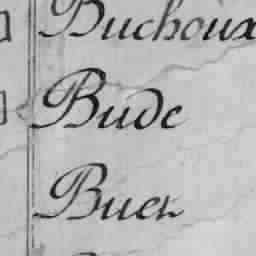 Buchoux
Bude
Buer